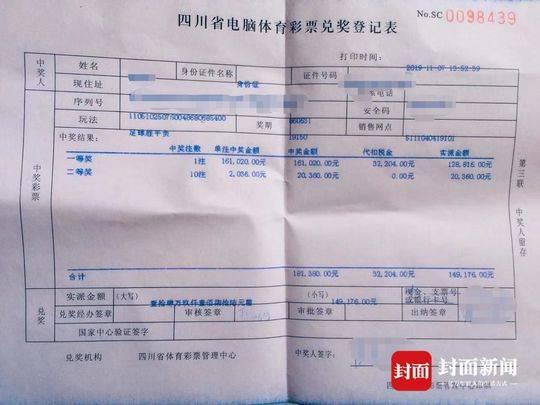 四川省电脑体育彩票兑奖登记表
No.SC 0098439
打印时间:
2019-11-07 13:52:59
中奖人
姓名
身份证件名称
身份证
证件号码
现住址
电话
序列号
安全码
110510250750048680585400
860631
玩法
足球胜平负
奖期
19150
销售网点
5111040419101
中奖彩票
中奖结果:
中奖注数 单注中奖金额 中奖金额 代扣税金 实派金额
一等奖 1注 161,020.00元 161,020.00元 32,204.00元 128,816.00元
二等奖 10注 2,036.00元 20,360.00元 0.00元 20,360.00元
合计 181,380.00元 32,204.00元 149,176.00元
第三联 中奖人留存
兑奖
实派金额
(大写)
壹拾肆万玖仟壹佰柒拾陆元整
(小写)
149,176.00元
现金、支票号
或银行卡号
兑奖经办签章
审核签章
审批签章
出纳签章
国家中心验证签字
兑奖机构
四川省体育彩票管理中心
中奖人签字:
封面
封面新闻
亿万年轻人的生活方式